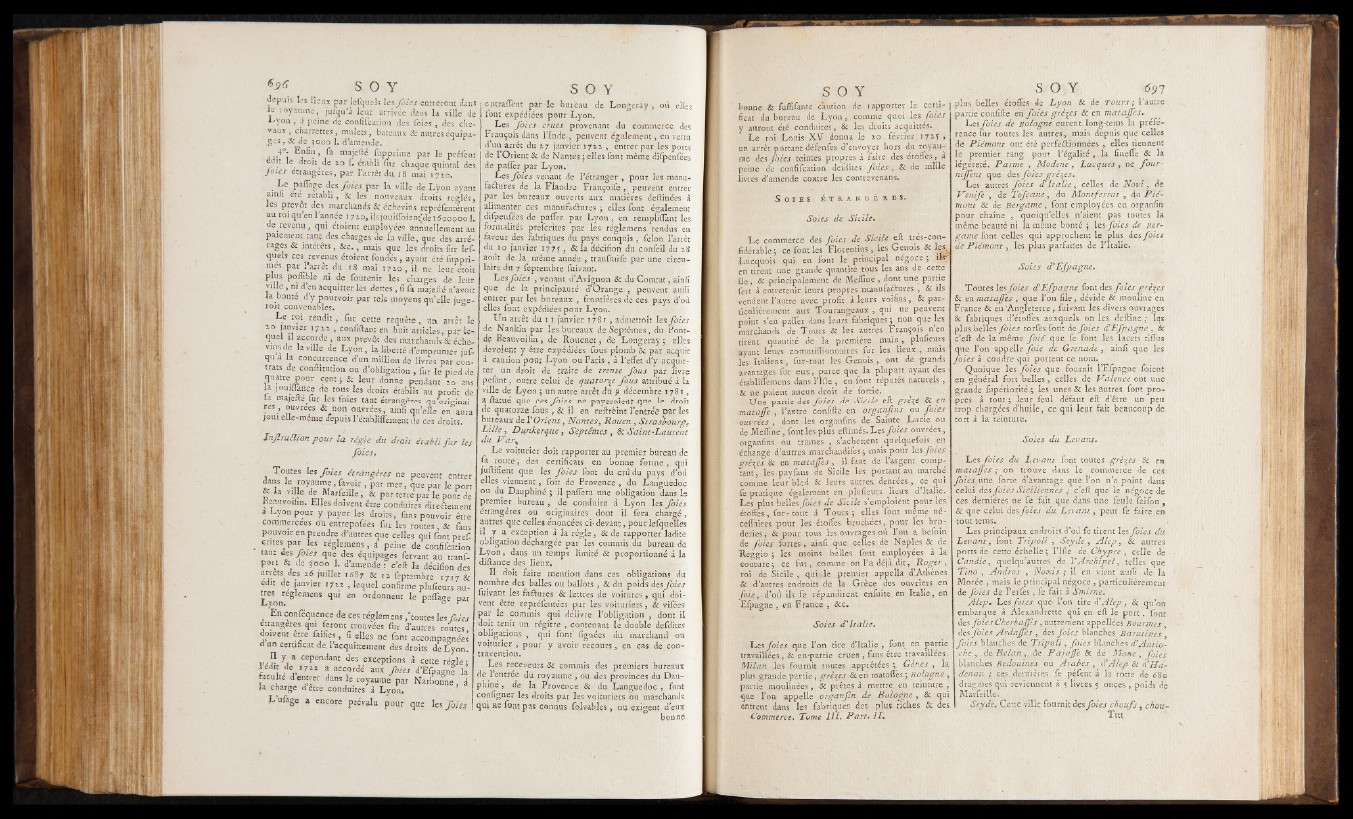 696 S O Y
depuis les lieux par lesquels les soies entreront dans
le royaume, jusqu'à leur arrivée dans la ville de
Lyon, à peine de confiscation des soies, des che-
vaux, charrettes, mulets, bateaux & autres équipa-
ges, & de 3000 l. d'amende.
4°. Enfin, sa majesté supprime par le présent
édit le droit de 20 s. établi sur chaque quintal des
soies étrangères, par l'arrêt du 18 mai 1720.
Le passage des soies par la ville de Lyon ayant
ainsi été rétabli, & les nouveaux droits réglés,
les prevôt des marchands & échevins représentèrent
au roi qu'en l'année 1720, ils jouissoient de 160000 l.
de revenu, qui étoient employées annuellement au
paiement tant des charges de la ville, que des arré-
rages & intérêts, &c., mais que les droits sur les-
quels ces revenus étoient fondés, ayant été suppri-
més par l'arrêt du 18 mai 1720, il ne leur étoit
plus possible ni de soutenir les charges de leur
ville, ni d'en acquitter les dettes, si sa majesté n'avoit
la bonté d'y pourvoir par tels moyens qu'elle juge-
roit convenables.
Le roi rendit, sur cette requête, un arrêt le
20 janvier 1722, consistant en huit articles, par le-
quel il accorde, aux prevôt des marchands & éche-
vins de la ville de Lyon, la liberté d'emprunter jus-
qu'à la concurrence d'un million de livres par con-
trats de constitution ou d'obligation, sur le pied de
quatre pour cent; & leur donne pendant 20 ans
la jouissance de tous les droits établis au profit de
sa majesté sur les soies tant étrangères qu'originai-
res, ouvrées & non ouvrées, ainsi qu'elle en aura
joui elle-même depuis l'établissement de ces droits.
Instruction pour la régie du droit établi sur les
soies.
Toutes les soies étrangères ne peuvent entrer
dans le royaume, savoir, par mer, que par le port
& la ville de Marseille, & par terre par le pont de
Beauvoisin. Elles doivent être conduites directement
à Lyon pour y payer les droits, sans pouvoir être
commercées ou entreposées sur les routes, & sans
pouvoir en prendre d'autres que celles qui sont pres-
crites par les réglemens, à peine de confiscation
tant des soies que des équipages servant au trans-
port & de 3000 l. d'amende: c'est la décision des
arrêts des 26 juillet 1687 & 12 septembre 1717 &
édit de janvier 1722, lequel confirme plusieurs au-
tres réglemens qui en ordonnent le passage par
Lyon.
En conséquence de ces réglemens, toutes les soies
étrangères qui seront trouvées sur d'autres routes,
doivent être saisies, si elles ne sont accompagnées
d'un certificat de l'acquittement des droits de Lyon.
Il y a cependant des exceptions à cette régle;
l'édit de 1722 a accordé aux soies d'Espagne la
faculté d'entrer dans le royaume par Narbonne, à
la charge d'être conduites à Lyon.
L'usage a encore prévalu pour que les soies
S O Y
entrassent par le bureau de Longeray, où elles
sont expédiées pour Lyon.
Les soies crues provenant du commerce des
François dans l'Inde, peuvent également, en vertu
d'un arrêt du 27 janvier 1722, entrer par les ports
de l'Orient & de Nantes; elles sont même dispensées
de passer par Lyon.
Les soies venant de l'étranger, pour les manu-
factures de la Flandre Françoise, peuvent entrer
par les bureaux ouverts aux matières destinées à
alimenter ces manufactures; elles sont également
dispensées de passer par Lyon, en remplissant les
formalités prescrites par les réglemens rendus en
faveur des fabriques du pays conquis, selon l'arrêt
du 10 janvier 1775, & la décision du conseil du 28
août de la même année, transmise par une circu-
laire du 7 septembre suivant.
Les soies, venant d'Avignon & du Comtat, ainsi
que de la principauté d'Orange, peuvent aussi
entrer par les bureaux, frontières de ces pays d'où
elles sont expédiées pour Lyon.
Un arrêt du 11 janvier 1781, admettoit les soies
de Nankin par les bureaux de Septêmes, du Pont-
de Beauvoisin, de Rouener, de Longeray; elles
devoient y être expédiées sous plomb & par acquit
à caution pour Lyon ou Paris, à l'effet d'y acquit-
ter un droit de traite de trente sous par livre
pesant, outre celui de quatorze sous attribué à la
ville de Lyon; un autre arrêt du 9 décembre 1781,
a statué que ces soies ne payeroient que le droit
de quatorze sous, & il en restreint l'entrée par les
bureaux de l'Orient, Nantes, Rouen, Strasbourg,
Lille, Dunkerque, Septêmes, & Saint-Laurent
du Var.
Le voiturier doit rapporter au premier bureau de
sa route, des certificats en bonne forme, qui
justifient que les soies sont du crû du pays d'où
elles viennent, soit de Provence, du Languedoc
ou du Dauphiné; il passera une obligation dans le
premier bureau, de conduire à Lyon les soies
étrangères ou originaires dont il sera chargé,
autres que celles énoncées ci-devant, pour lesquelles
il y a exception à la régle, & de rapporter ladite
obligation déchargée par les commis du bureau de
Lyon, dans un temps limité & proportionné à la
distance des lieux.
Il doit faire mention dans ces obligations du
nombre des balles ou ballots, & du poids des soies
suivant les factures & lettres de voitures, qui doi-
vent être représentées par les voituriers, & visées
par le commis qui délivre l'obligation, dont il
doit tenir un régître, contenant le double desdites
obligations, qui sont signées du marchand ou
voiturier, pour y avoir recours, en cas de con-
travention.
Les receveurs & commis des premiers bureaux
de l'entrée du royaume, ou des provinces du Dau-
phiné, de la Provence & du Languedoc, font
consigner les droits par les voituriers ou marchands
qui ne sont pas connus solvables, ou exigent d'eux
bonne
S O Y
bonne & suffisante caution de rapporter le certi-
ficat du bureau de Lyon, comme quoi les soies
y auront été conduites, & les droits acquittés.
Le roi Louis XV donna le 20 février 1725,
un arrêt portant défenses d'envoyer hors du royau-
me des soies teintes propres à faire des étoffes, à
peine de confiscation desdites soies, & de mille
livres d'amende contre les contrevenans.
SOIES ÉTRANGÈRES.
Soies de Sicile.
Le commerce des soies de Sicile est très-con-
sidérable; ce sont les Florentins, les Génois & les
Lucquois qui en font le principal négoce; ils
en tirent une grande quantité tous les ans de cette
île, & principalement de Messine, dont une partie
sert à entretenir leurs propres manufactures, & ils
vendent l'autre avec profit à leurs voisins, & par-
ticulièrement aux Tourangeaux, qui ne peuvent
point s'en passer dans leurs fabriques; non que les
marchands de Tours & les autres François n'en
tirent quantité de la première main, plusieurs
ayant leurs commissionnaires sur les lieux, mais
les Italiens, sur-tout les Génois, ont de grands
avantages sur eux, parce que la plupart ayant des
établissemens dans l'île, en sont réputés naturels,
& ne paient aucun droit de sortie.
Une partie des soies de Sicile est grèze & en
matasse, l'autre consiste en organsins ou soies
ouvrées, dont les organsins de Sainte Lucie ou
de Messine, sont les plus estimés. Les soies ouvrées,
organsins ou trames, s'achettent quelquefois en
échange d'autres marchandises; mais pour les soies
grèzes & en matasses, il faut de l'argent comp-
tant, les paysans de Sicile les portant au marché
comme leur bled & leurs autres denrées, ce qui
se pratique également en plusieurs lieux d'Italie.
Les plus belles soies de Sicile s'emploient pour les
étoffes, sur-tout à Tours; elles sont même né-
cessaires pour les étoffes brochées, pour les bro-
deries, & pour tous les ouvrages où l'on a besoin
de soies fortes, ainsi que celles de Naples & de
Reggio; les moins belles sont employées à la
couture; ce fut, comme on l'a déjà dit, Roger,
roi de Sicile, qui le premier appella d'Athènes
& d'autres endroits de la Grèce des ouvriers en
soie, d'où ils se répandirent ensuite en Italie, en
Espagne, en France, &c.
Soies d'Italie.
Les soies que l'on tire d'Italie, sont en partie
travaillées, & en partie crues, sans être travaillées.
Milan les fournit toutes apprêtées; Gênes, la
plus grande partie, grèzes & en matasses; Bologne,
partie moulinées, & prêtes à mettre en teinture,
que l'on appelle organsin de Bologne, & qui
entrent dans les fabriques des plus riches & des
Commerce. Tome III. Part. II.
S O Y 697
plus belles étoffes de Lyon & de Tours; l'autre
partie consiste en soies grèzes & en matasses.
Les soies de Bologne eurent long-tems la préfé-
rence sur toutes les autres, mais depuis que celles
de Piémont ont été perfectionnées, elles tiennent
le premier rang pour l'égalité, la finesse & la
légèreté. Parme, Modene, Lucques, ne four-
nissent que des soies grèzes.
Les autres soies d'Italie, celles de Novi, de
Venise, de Toscane, du Montferrat, du Pié-
mont & de Bergame, sont employées en organsin
pour chaîne, quoiqu'elles n'aient pas toutes la
même beauté ni la même bonté; les soies de Ber-
game sont celles qui approchent le plus des soies
de Piémont, les plus parfaites de l'Italie.
Soies d'Espagne.
Toutes les soies d'Espagne sont des soies grèzes
& en matasses, que l'on file, dévide & mouline en
France & en Angleterre, suivant les divers ouvrages
& fabriques d'étoffes auxquels on les destine; les
plus belles soies torses sont de soies d'Espagne, &
c'est de la même soie que se font les lacets tissus
que l'on appelle soie de Grenade, ainsi que les
soies à coudre qui portent ce nom.
Quoique les soies que fournit l'Espagne soient
en général fort belles, celles de Valence ont une
grande supériorité; les unes & les autres sont pro-
pres à tout; leur seul défaut est d'être un peu
trop chargées d'huile, ce qui leur fait beaucoup de
tort à la teinture.
Soies du Levant.
Les soies du Levant sont toutes grèzes & en
matasses; on trouve dans le commerce de ces
soies une sorte d'avantage que l'on n'a point dans
celui des soies Siciliennes; c'est que le négoce de
ces dernières ne se fait que dans une seule saison,
& que celui des soies du Levant, peut se faire en
tout tems.
Les principaux endroits d'où se tirent les soies du
Levant, sont Tripoli, Seyde, Alep, & autres
ports de cette échelle; l'île de Chypre, celle de
Candie, quelqu'autres de l'Archipel, telles que
Tino, Andros, Naxis; il en vient aussi de la
Morée, mais le principal négoce, particulièrement
de soies de Perses, se fait à Smirne.
Alep. Les soies que l'on tire d'Alep, & qu'on
embarque à Alexandrette qui en est le port, sont
des soies Cherbasses, autrement appellées Bourmes,
des soies Ardasses, des soies blanches Barutines,
soies blanches de Tripoli, soies blanches d'Antio-
che, de Belan, de Parasse & de Mone, soies
blanches Bedouines ou Arabes, d'Alep & d'Ha-
denau; ces dernières se pèsent à la rotte de 680
dragmes qui reviennent à 5 livres 5 onces, poids de
Marseille.
Seyde. Cette ville fournit des soies choufs, chou-
Tttt